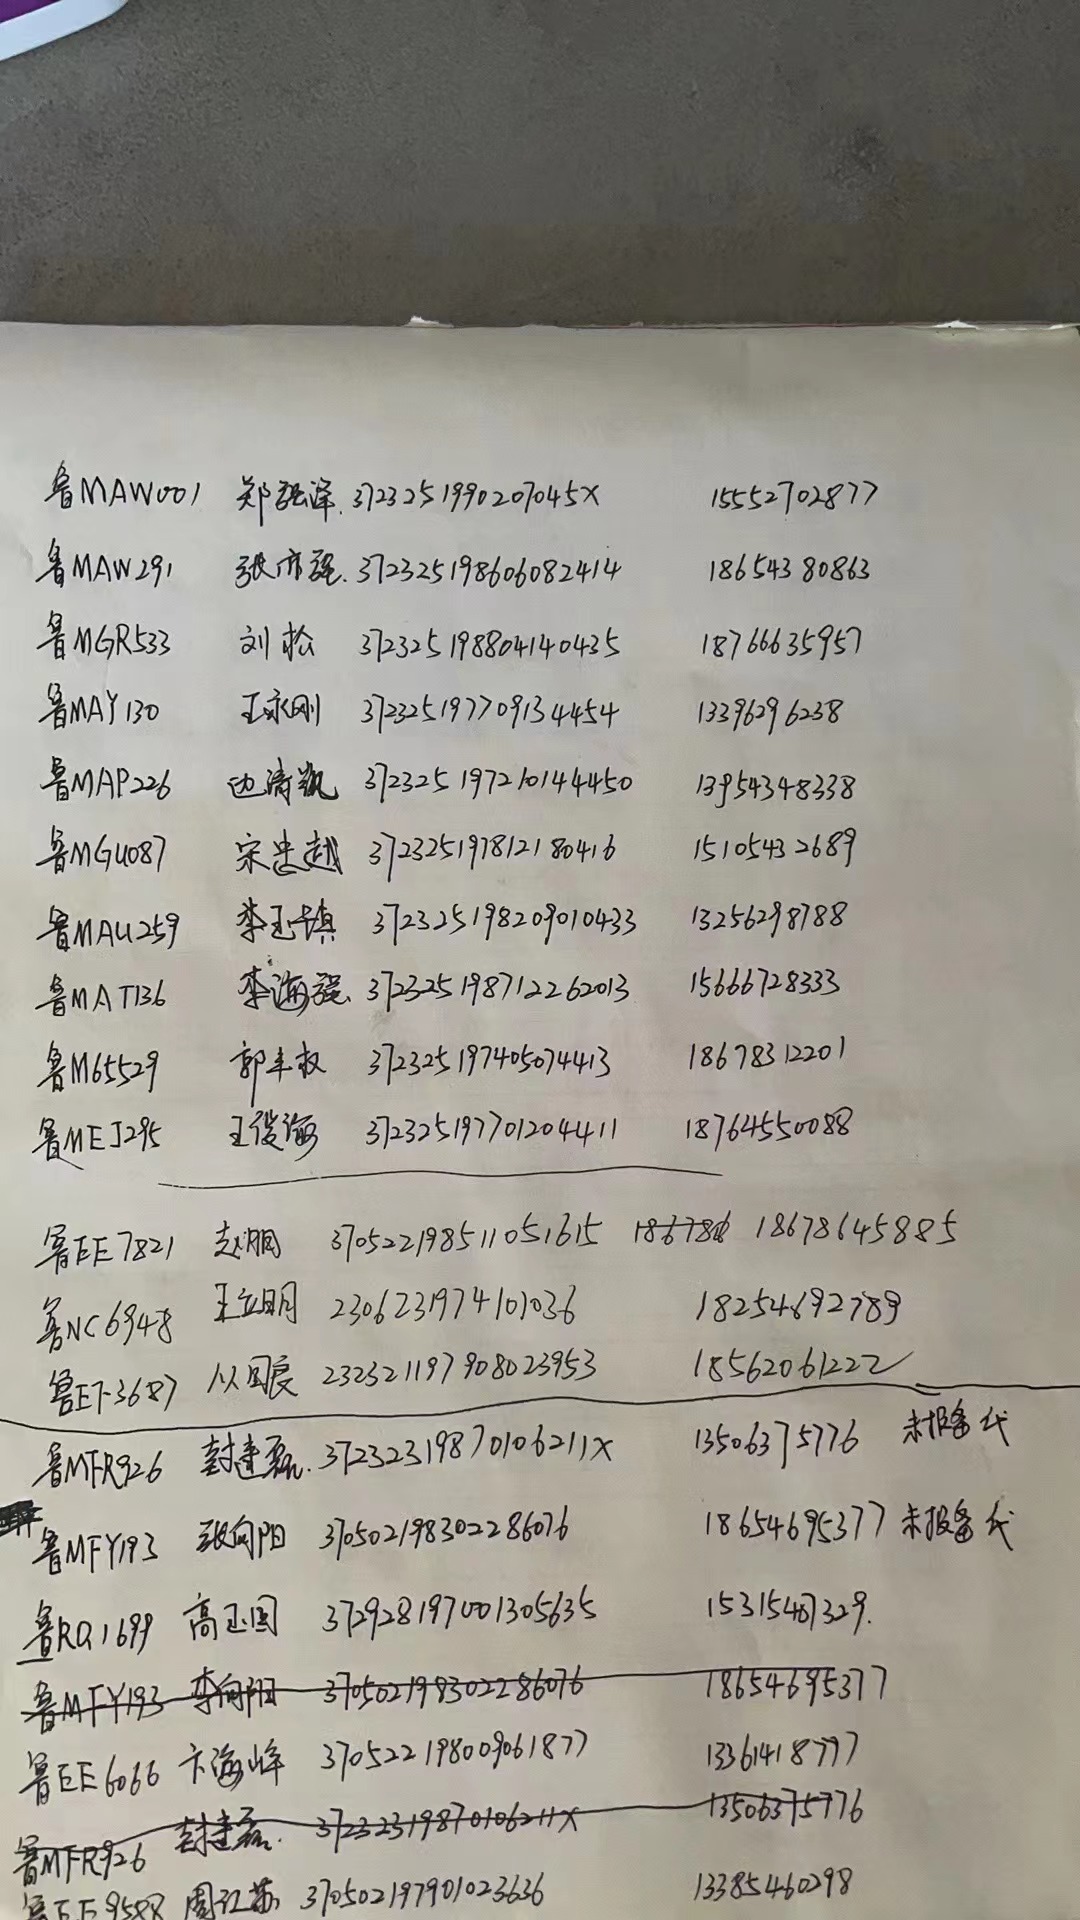 鲁MAW001 郑强泽. 3723251990207045X 15552702877
鲁MAW291 张市强. 372325198606082414 18654380863
鲁MGR533 刘松 372325198804140435 18766635957
鲁MAY130 王永刚 372325197709134454 13396296238
鲁MAP226 边涛凯 372325197210144450 13954348338
鲁MGU087 宋忠越 372325197812180416 15105432689
鲁MAU259 李玉镇 372325198209010433 13256298788
鲁MAT136 李海强. 372325198712262013 15666728333
鲁M65529 郭丰收 372325197405074413 18678312201
鲁MEJ295 王俊海 372325197701204411 18764550088
鲁EE7821 赵胭 370522198511051615 18678645885
鲁NC6948 王立明 2306231974101036 18254692789
鲁EF3687 从国良 232321197908023953 18562061222
鲁MFR926 封建磊. 37232319870106211X 13506375776 未报备 代
鲁MFY193 张向阳 370502198302286076 18654695377 未报备 代
鲁RQ1699 高玉国 372928197001305635 15315487329.
鲁MFY193 李向阳 370502198302286076 18654695377
鲁EE6066 卞海峰 370522198009061877 13361418777
鲁MFR926 封建磊. 37232319870106211X 13506375776
鲁EE9588 周江苏 370502197901023636 13385460298